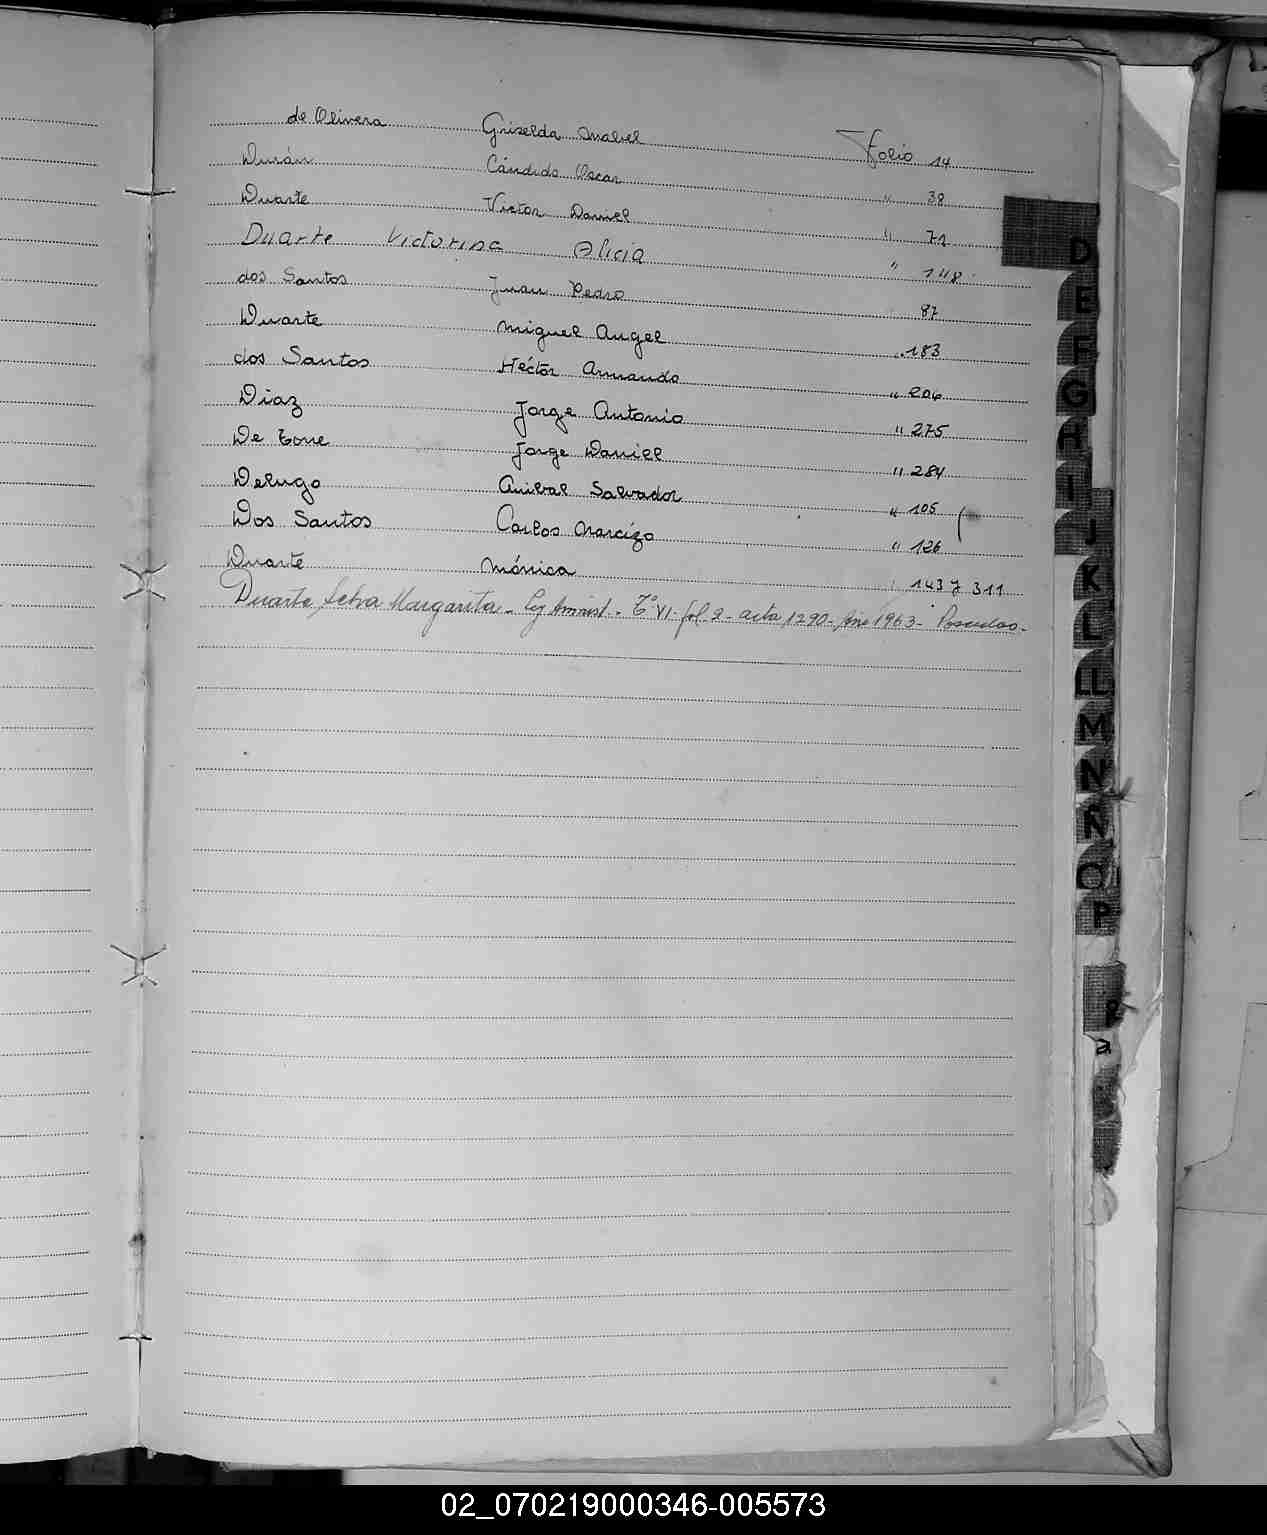 de Olivera Griselda Mabel Folio 14
Durán Cándido Oscar " 38
Duarte Victor Daniel " 71
Duarte Victorina Alicia " 148
dos Santos Juan Pedro 87
Duarte Miguel Angel " 183
dos Santos Héctor Armando " 206
Diaz Jorge Antonio " 275
De Jorge Daniel " 284
Delugo Anibal Salvador " 105
Dos Santos Carlos Narcizo " 126
Duarte Mónica " 143 y 311
Duarte, Selva Margarita - Leg. - Tº VI - fol. 2 - acta 1290 - Año 1963 - Posadas -
D
E
F
G
H
I
J
K
L
LL
M
N
Ñ
O
P
R
02_070219000346-005573